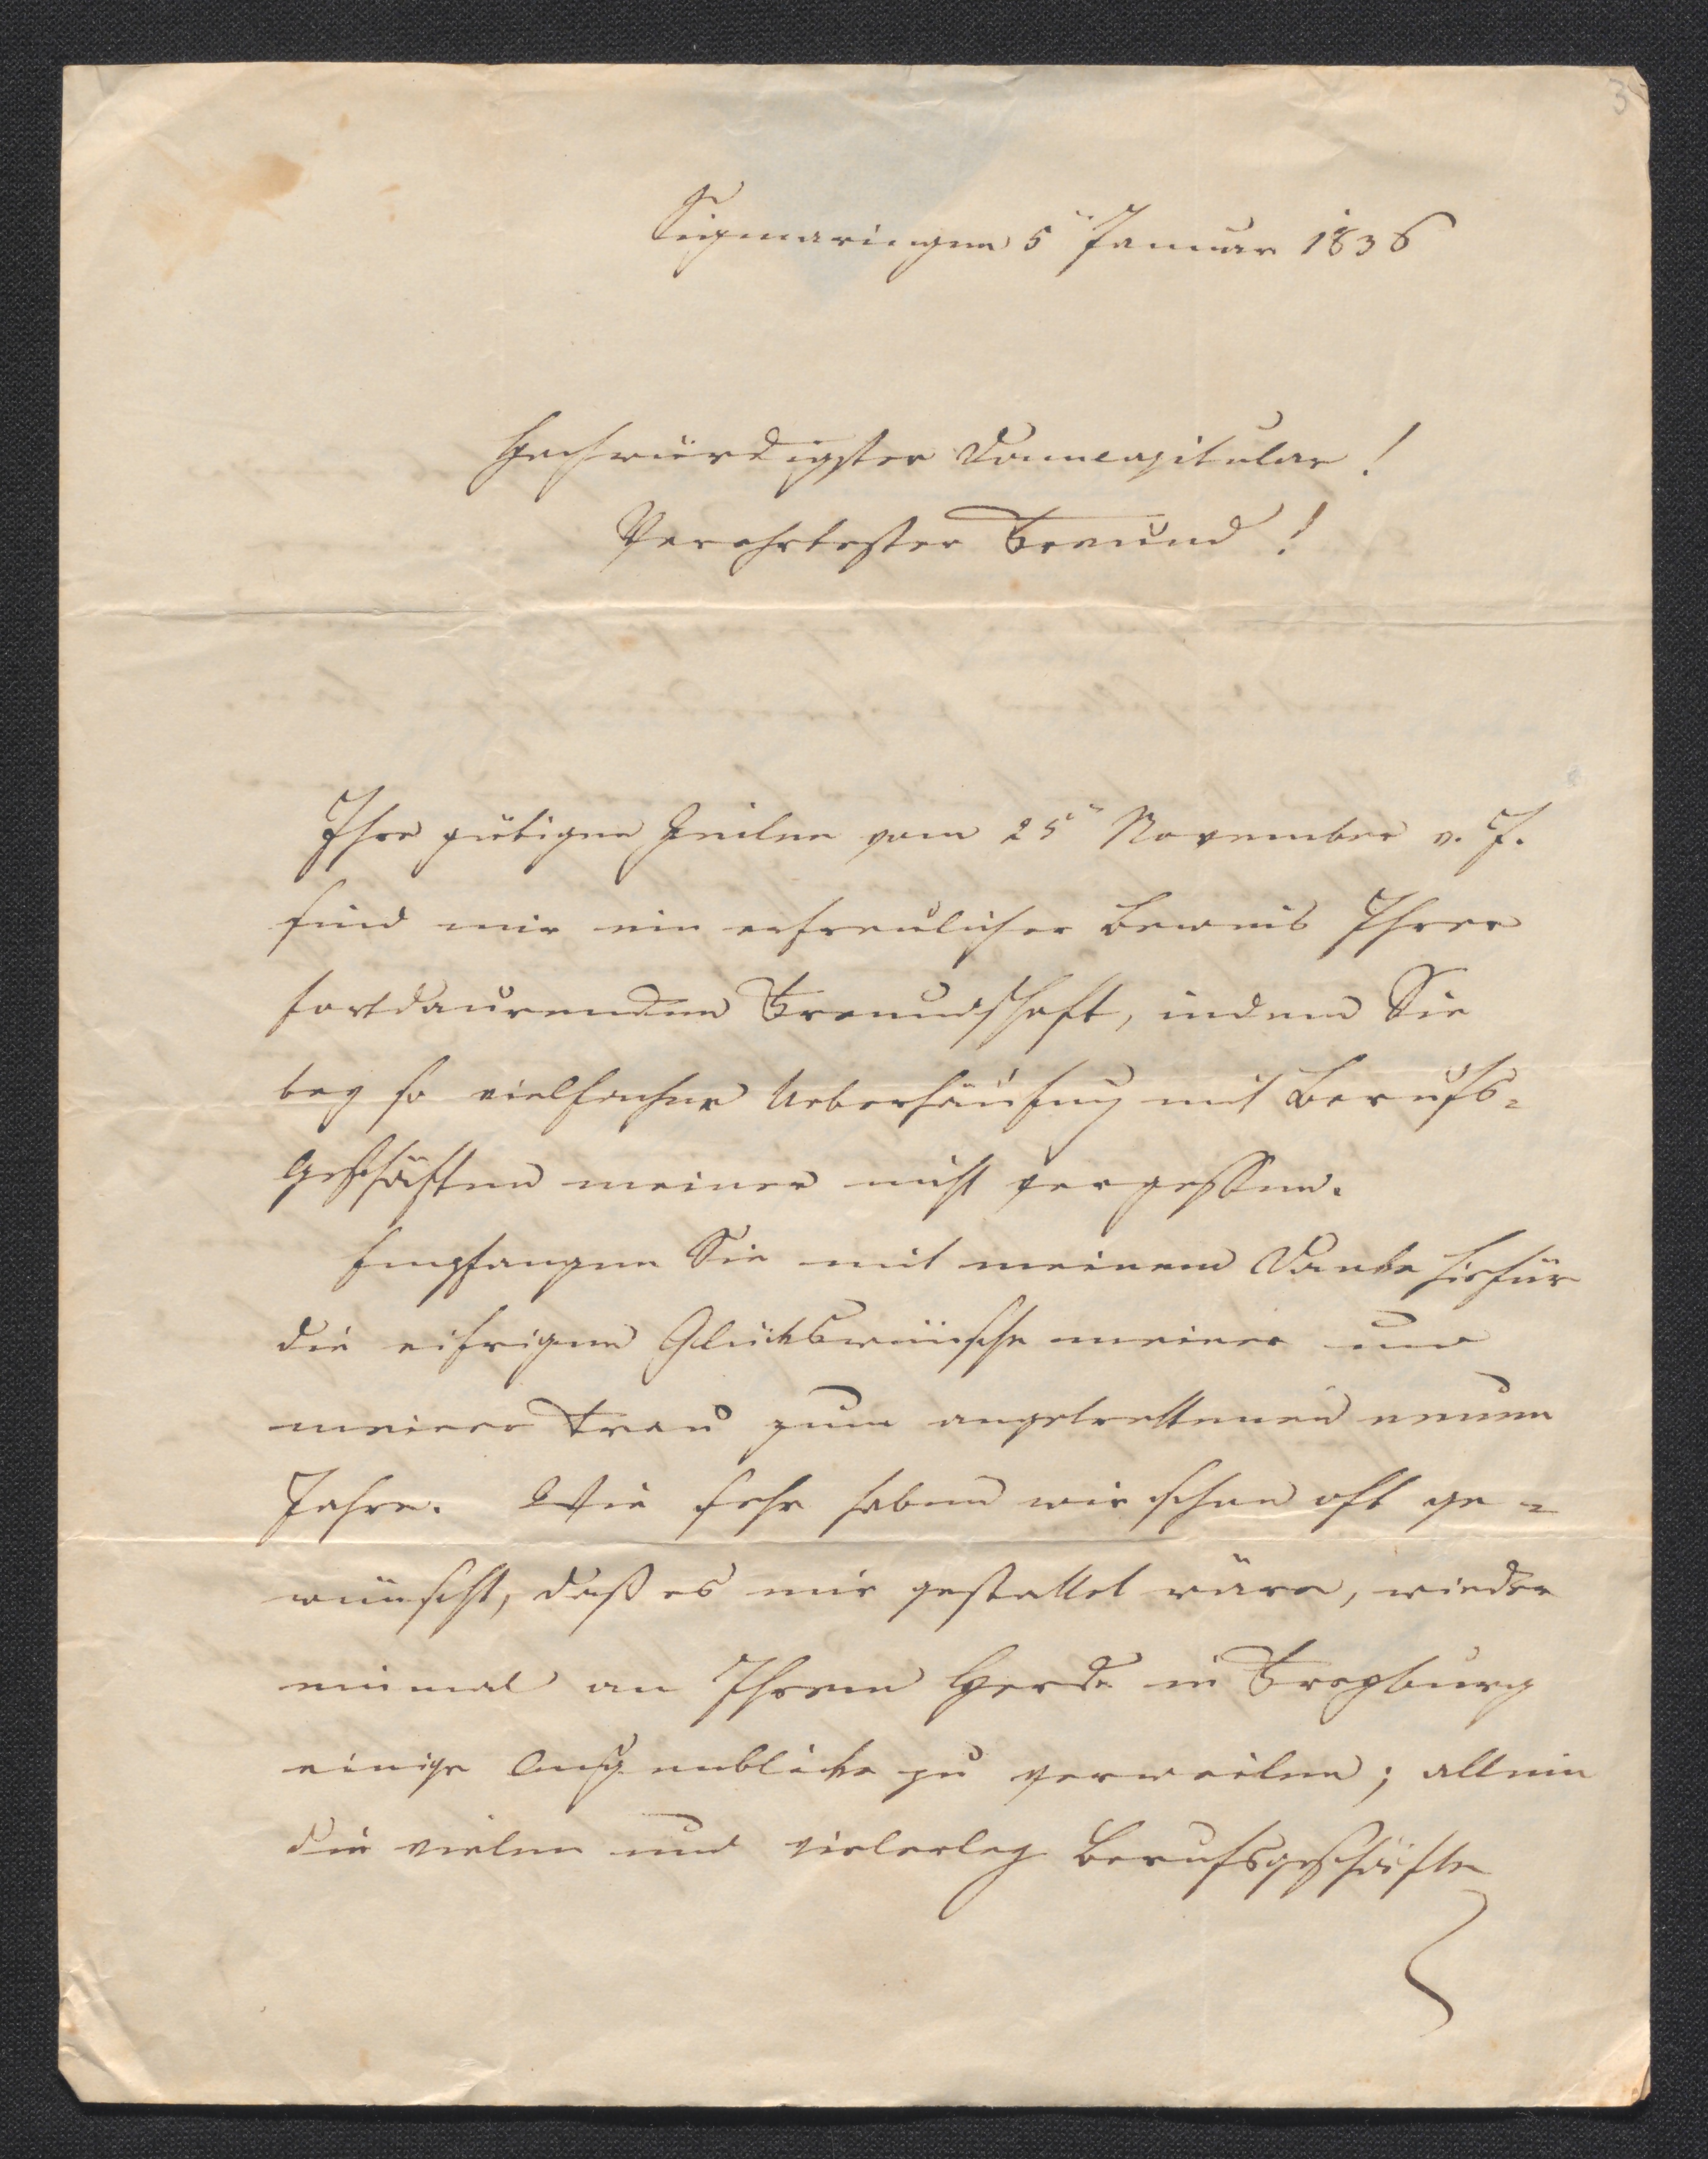 3
Sigmaringen 5n Januar 1836
Hochwürdigster Domcapitular!
Verehrtester Freund!
Ihre gütigen Zeilen vom 25n November v. J.
sind mir ein erfreulicher Beweis Ihrer
fortdaurenden Freundschaft, indem Sie
bey so vielfacher Ueberhäufung mit Berufs-
Geschäften meiner nicht vergessen.
Empfangen Sie mit meinem Danke hiefür
die eifrigen Glückswünsche meiner und
meiner Frau zum angetrettenen neuen
Jahre. Wie sehr haben wir schon oft ge-
wünscht, daß es mir gestattet wäre, wieder
einmal an Ihrem Herde in Freyburg
einige Augenblicke zu verweilen; allein
die vielen und vielerley Berufsgeschäfte